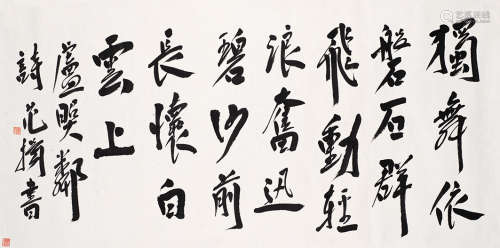 獨舞依
磐石群
飛動輕
浪奮迅
碧沙前
長懷白
雲上
盧照鄰
詩范揚書